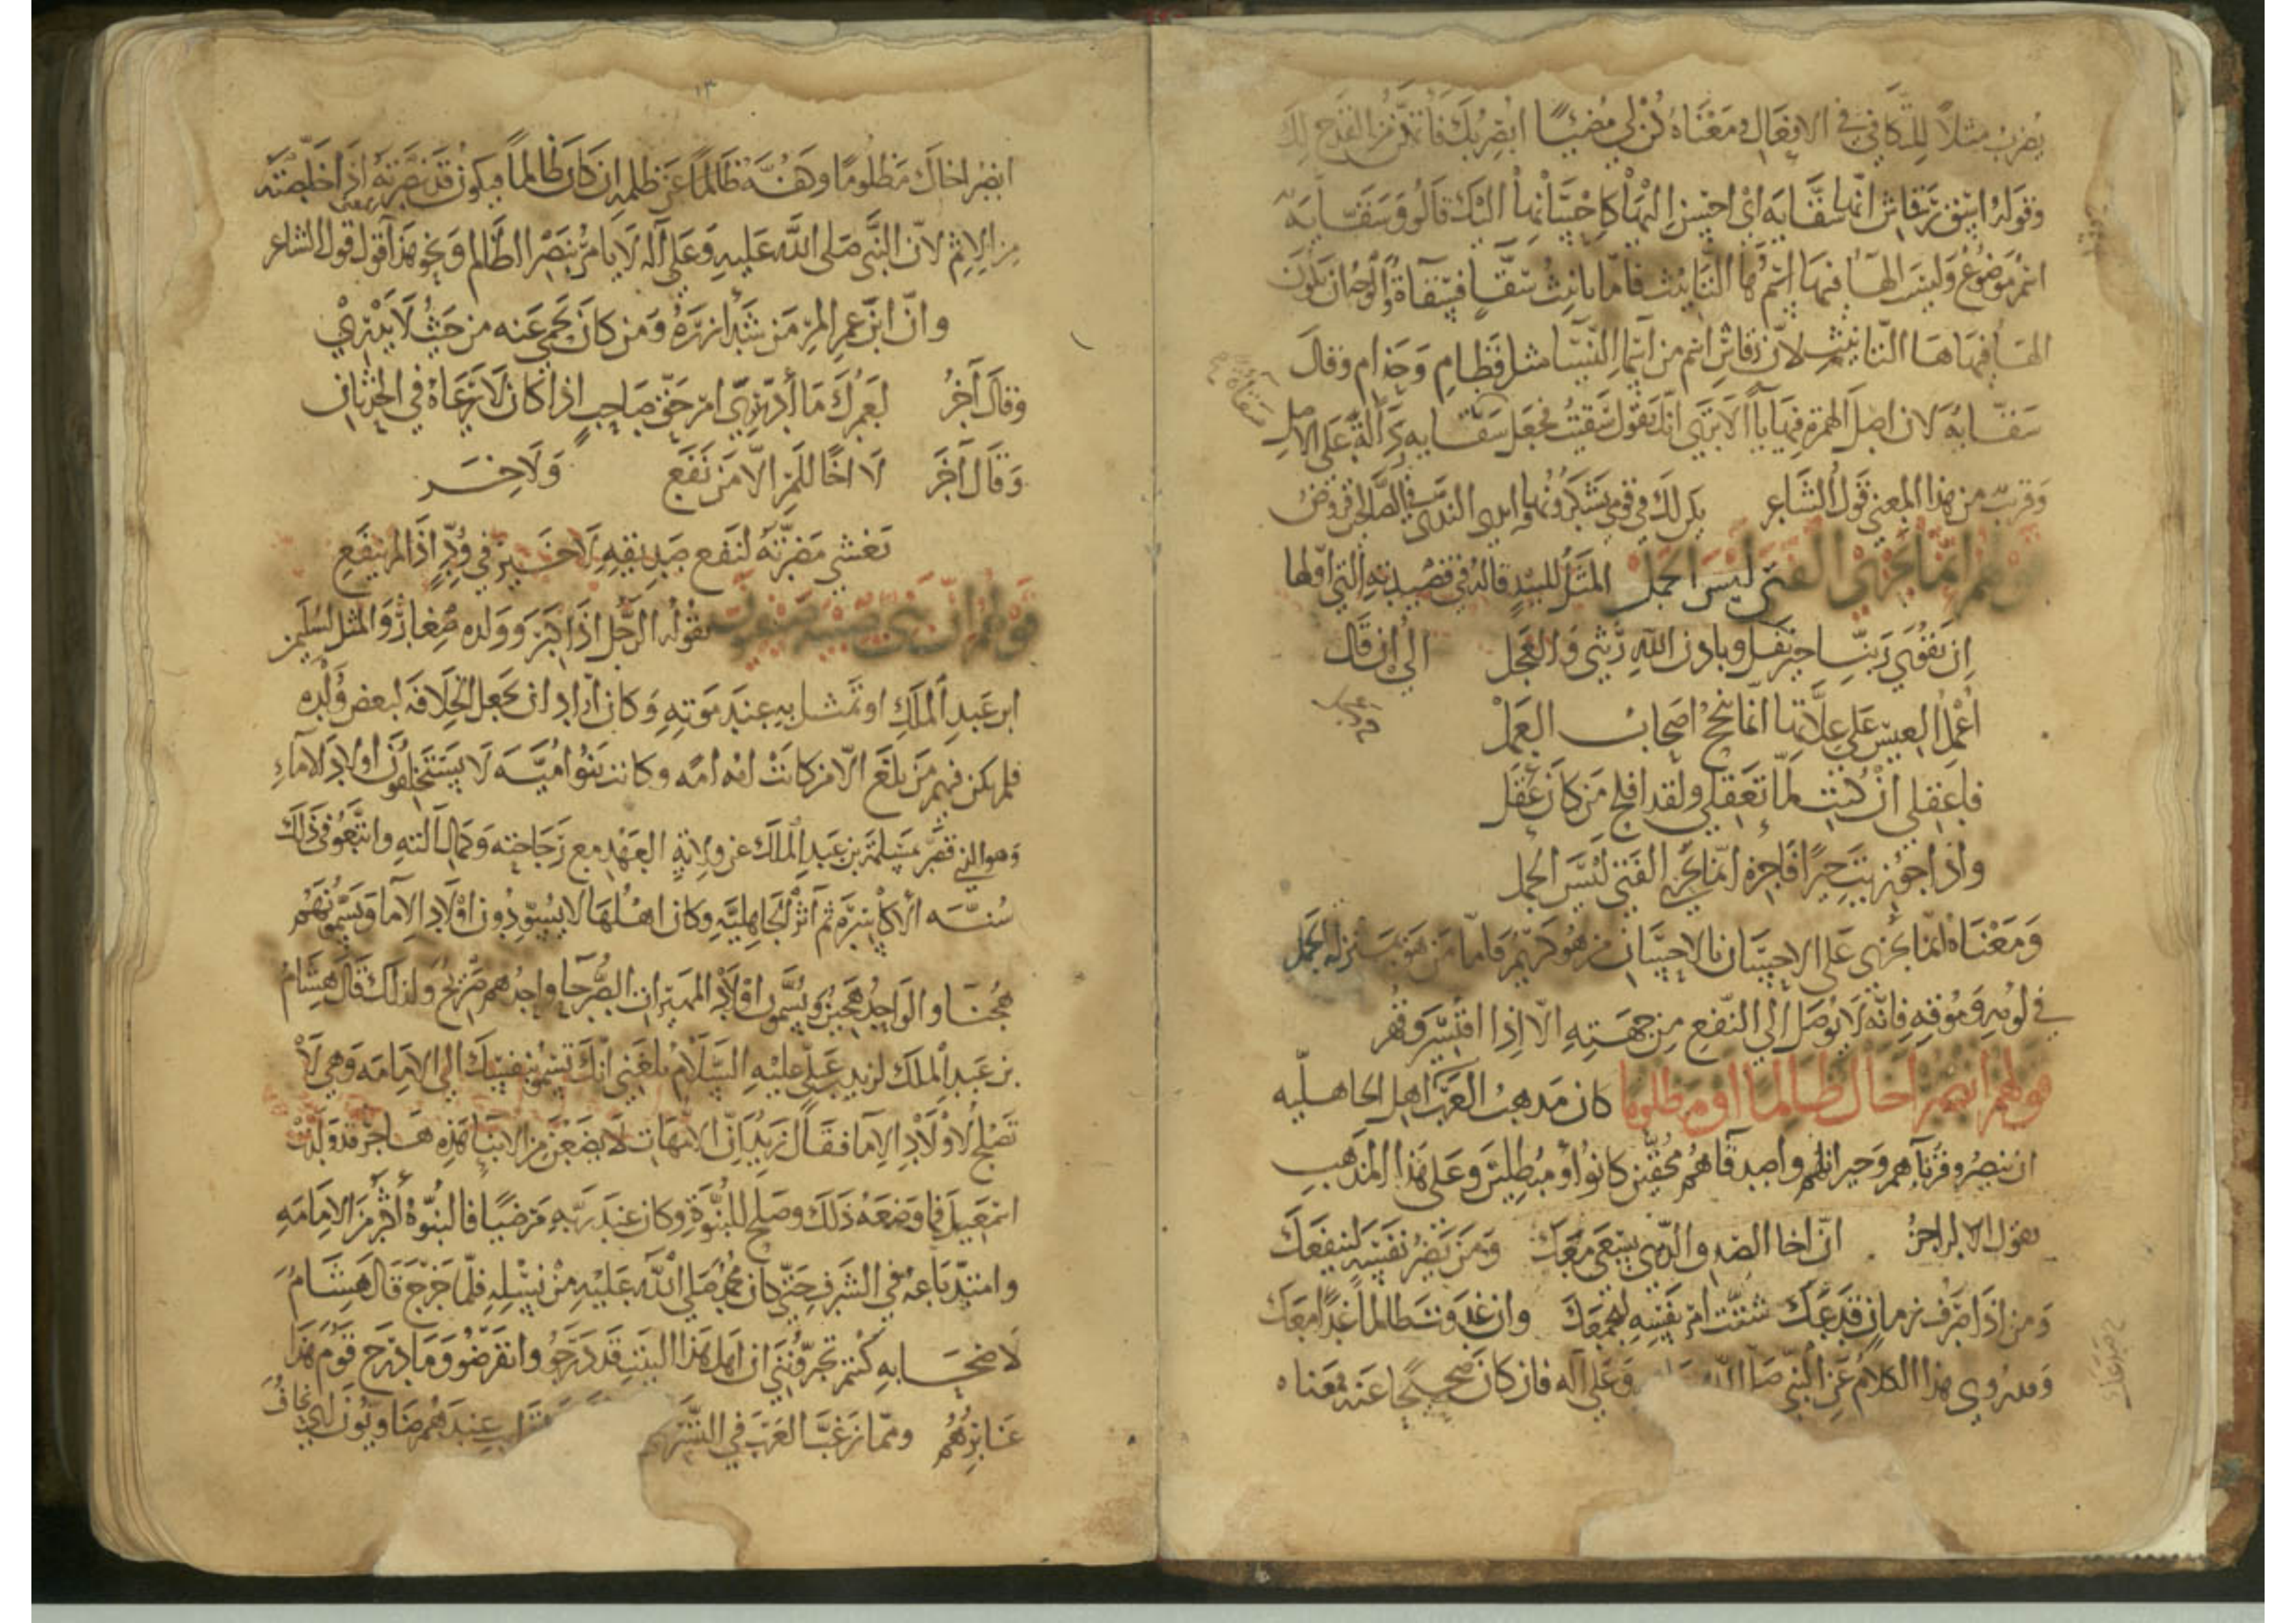 يضرب مثلًا للتكافي في الافعال ومعناه كن لي مضيئًا ابصر بك فاتمكن من القدح لك
وقوله اسق رقاش انها سقّايه اى احسن اليها كاحسانها اليك قالوا وسقّايه
اسم موضوع وليس الها فيها اسم ها التانيث فاما تانيث سقّا فسقّاة والوجه ان يكون
الها فيها ها التانيث لان رقاش اسم من اسما النسا مثل قطام وحذام وقال
سقّايه لان اصل الهمزة فيها يآ الا ترى انك تقول سقيت فجعل سقّايه دلالة على الاصل
سقاة
وقريب من هذا المعنى قول الشاعر يكن لك في قومي يد يشكرونها وايدى الندى في الصالحين قروض
قولهم انما يجزى الفتى ليس الجمل المثل للبيد قاله في قصيدته التي اولها
ان تقوى ربنا خير نفل وباذن الله ريثى والعجل الى ان قال
اعمل العيس على علاتها انما ينجح اصحاب العمل
فاعقلى ان كنت لما تعقلى ولقد افلح من كان عقل
واذا جوزيت خيرًا فاجزه انما يجزي الفتى ليس الجمل
ومعناه انما يجزى على الاحسان بالاحسان من هو كريم فاما من هو بمنزله الجمل
في لومه وموقه فانه لا يوصل الى النفع من جهته الا اذا اقتسر وقهر
قولهم انصر اخاك ظالما او مظلوما كان مذهب العرب اهل الجاهليه
ان ينصروا قربآهم وجيرانهم واصدقاهم محقين كانوا او مبطلين وعلى هذا المذهب
يقول الراجز ان اخا الصدق الذي يسعى معك ومن يضر نفسه لينفعك
ومن اذا صرف زمان صدعك شتت امر نفسه ليجمعك وان غدوت ظالمًا غدا معك
وقد روي هذا الكلام عن النبي صلى الله وعلى آله فان كان صحيحًا عنه فمعناه
١٣
انصر اخاك مظلومًا وكفّه ظالمًا عن ظلمه ان كان ظالمًا فيكون قد نصرته اذا خلصته
من الاثم لان النبى صلى الله عليه وعلى آله لا يامر بنصر الظالم ونحو هذا قول الشاعر
وان ابن عم المر من شد ازره ومن كان يحمي عنه من حيث لا يدرى
وقال آخر لعمرك ما أدرى امر حق صاحب اذا كان لا يرعاه في الحدثان
وقال آخر لا اخا للمر الا من نفع ولاخر
تغشى مضرته لنفع صديقه لا خير في ود اذا لم ينفع
قولهم ان بنى صبية صيفيون يقوله الرجل اذا كبر وولده صغار والمثل لسليمن
ابن عبد الملك او تمثل به عند موته وكان اراد ان يجعل الخلافه لبعض ولده
فلم يكن فيهم من بلغ الا من كانت امه امه وكانت بنو اميّه لا يستخلفون اولاد الامآء
وهو الذي قصر بمسلمة بن عبد الملك عن ولاية العهد مع رجاحته وكمال آلته واتبعوا في ذلك
سنّه الاكاسرة ثم اثر الجاهلية وكان اهلها لا يسودون اولاد الاما ويسمونهم
هجنا والواحد هجين ويسمون اولاد المهيرات الصرحا واحدهم صريح ولذلك قال هشام
بن عبد الملك لزيد بن علي عليه السلام بلغني انك تسمو بنفسك الى الامامه وهي لا
تصلح لاولاد الاما فقال زيد ان الامهات لا يضعن من الابنا هذه هاجر قد ولدت
اسمعيل فما وضعه ذلك وصلح للنبوة وكان عند ربه مرضيًا فالنبوة اكثر من الامامه
وامتد باعه في الشرف حتى كان محمد صلى الله عليه من نسله فلما خرج قال هشام
لاصحابه كنتم تخبروننى ان اهل هذا البيت قد درجوا وانقرضوا وما درج قوم هذا
غابرهم ومما رغب العرب في عندهم ضاويون اى نحاف